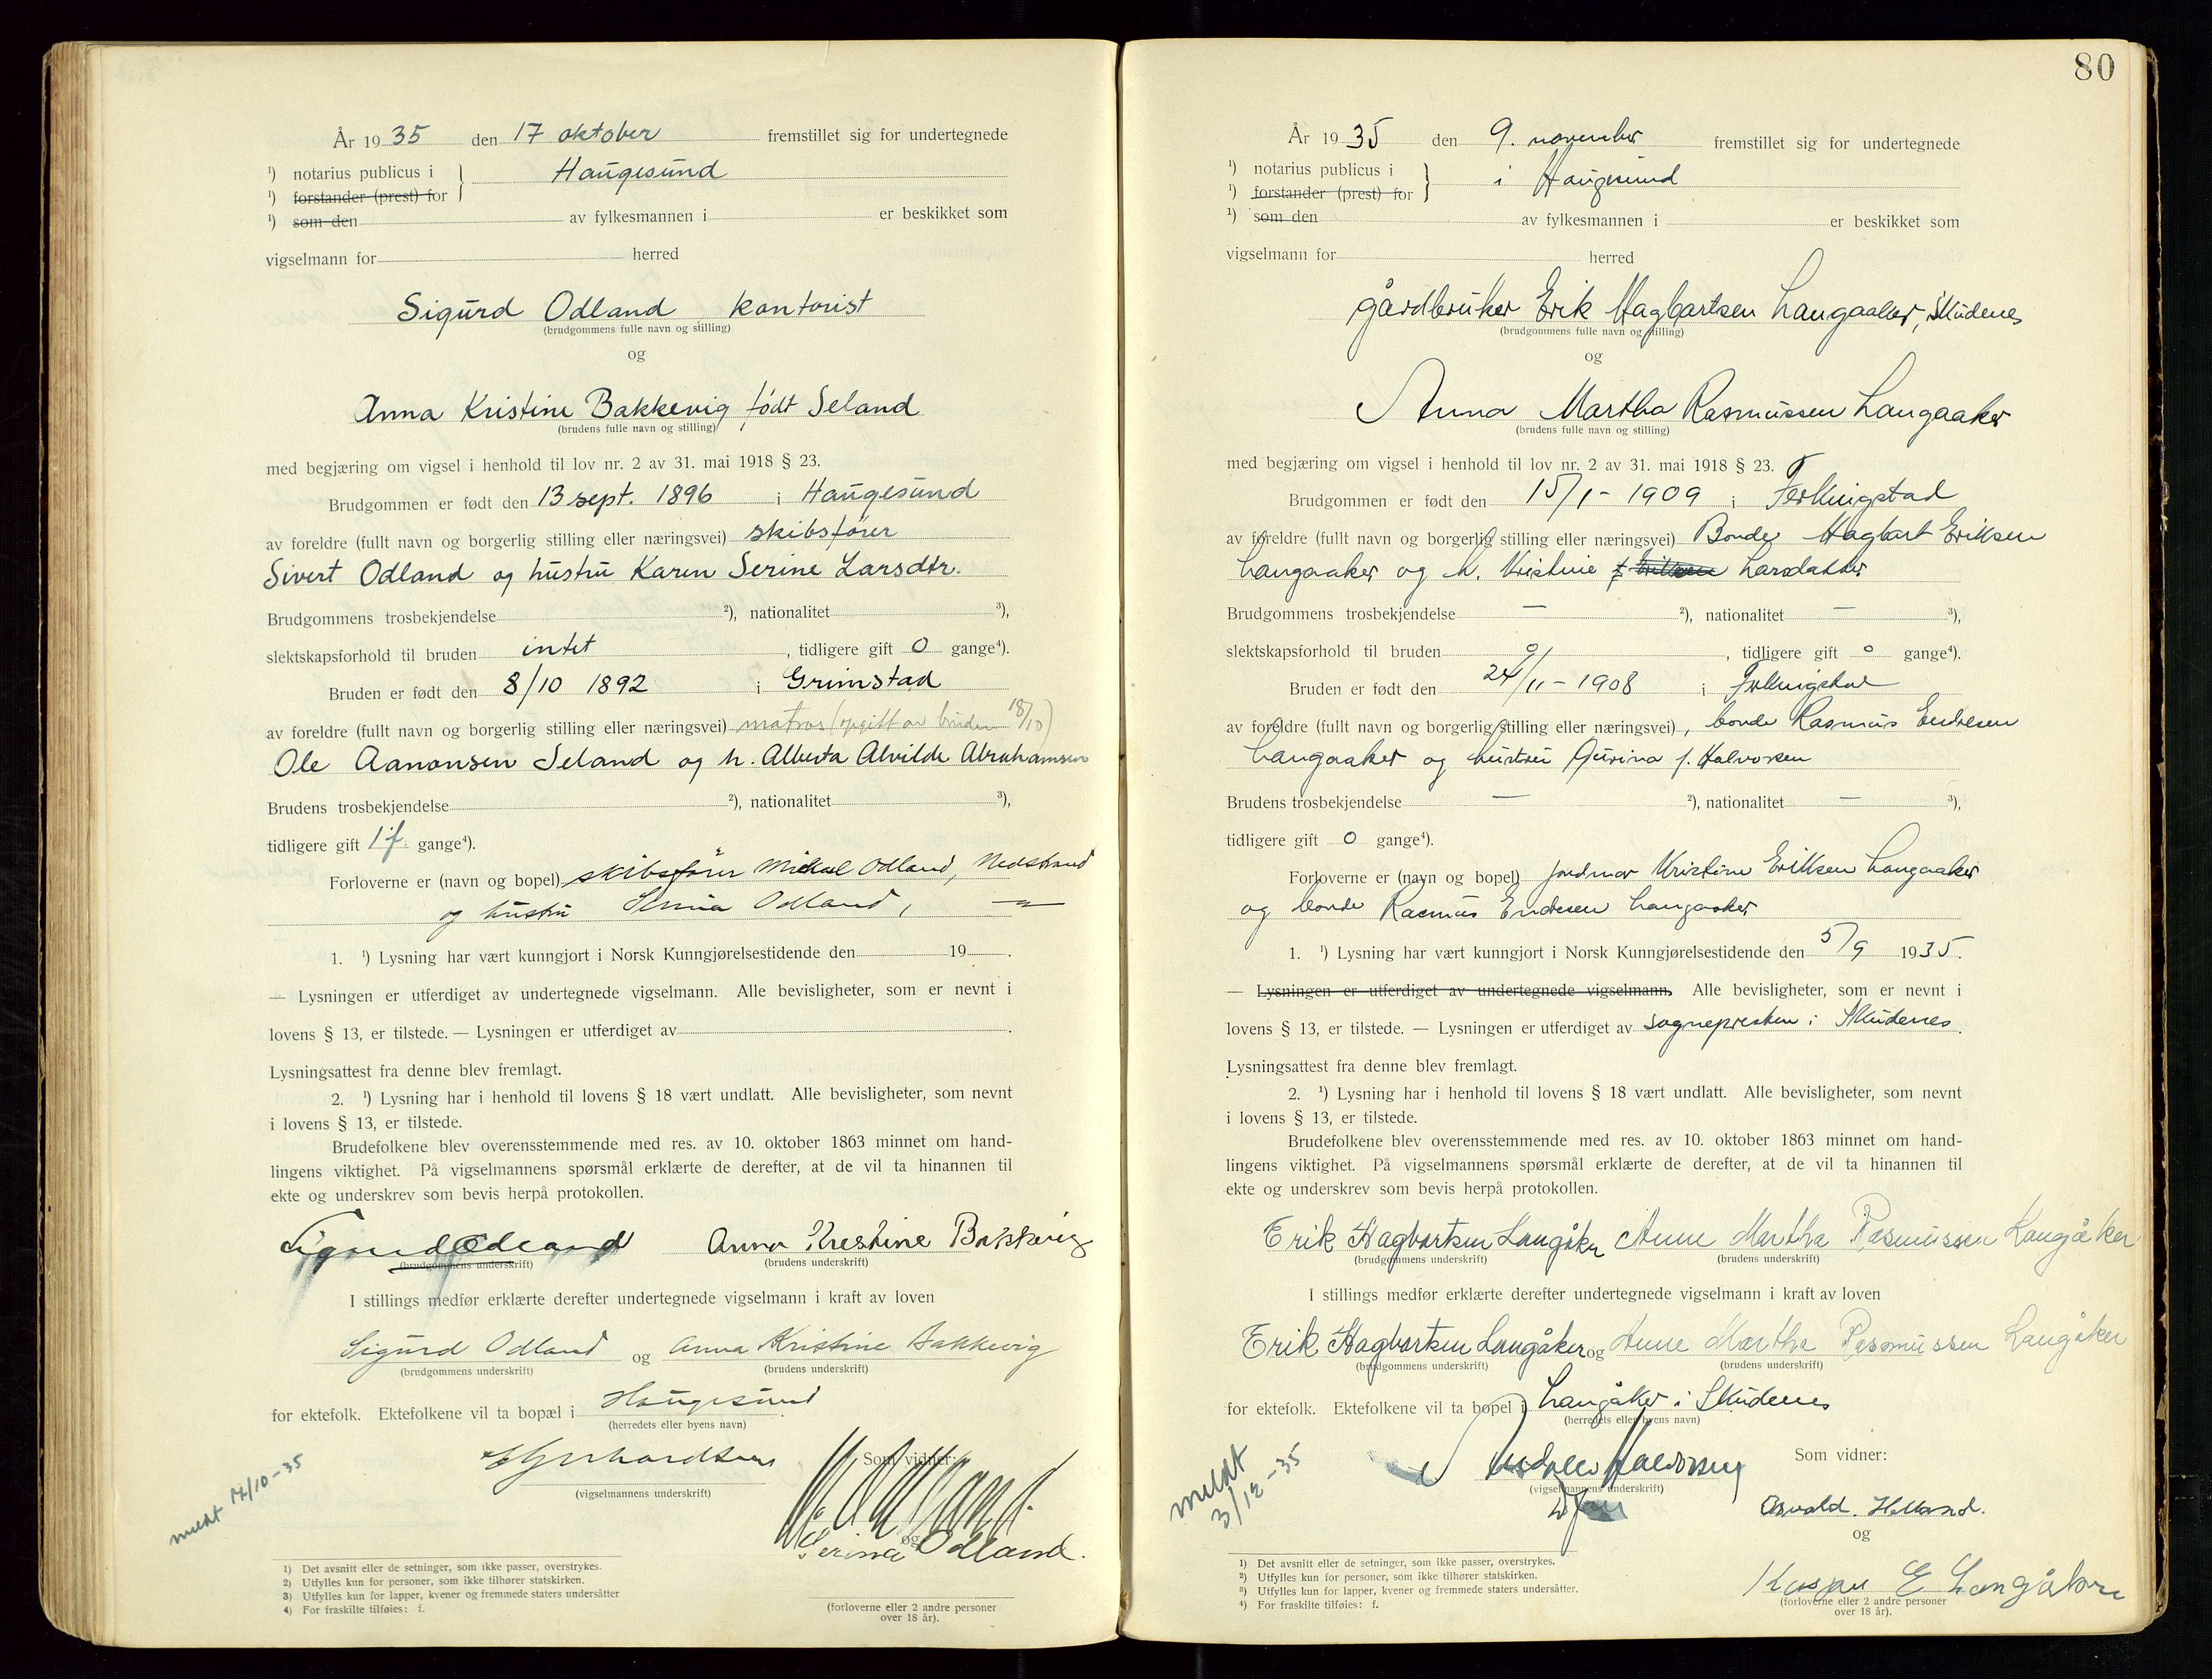 År 1935 den 17 oktober fremstillet sig for undertegnede
¹) notarius publicus i } Haugesund
¹) forstander (prest) for
¹) som den av fylkesmannen i er beskikket som
vigselmann for herred
Sigurd Odland kontorist
(brudgommens fulle navn og stilling)
og
Anna Kristine Bakkevig født Seland
(brudens fulle navn og stilling)
med begjæring om vigsel i henhold til lov nr. 2 av 31. mai 1918 § 23.
Brudgommen er født den 13 sept. 1896 i Haugesund
av foreldre (fullt navn og borgerlig stilling eller næringsvei) skibsfører
Sivert Odland og hustru Karen Serine Larsdtr.
Brudgommens trosbekjendelse ²), nationalitet ³),
slektskapsforhold til bruden intet, tidligere gift 0 gange⁴).
Bruden er født den 8/10 1892 i Grimstad
av foreldre (fullt navn og borgerlig stilling eller næringsvei) matros (opgitt av bruden 18/10)
Ole Aanonsen Seland og h. Alberta Alvilde Abrahamsen
Brudens trosbekjendelse ²), nationalitet ³),
tidligere gift 1 f. gange⁴).
Forloverne er (navn og bopel) skibsfører Mikal Odland, Nedstrand
og hustru Serina Odland, —"—
1. ¹) Lysning har vært kunngjort i Norsk Kunngjørelsestidende den 19 .
— Lysningen er utferdiget av undertegnede vigselmann. Alle bevisligheter, som er nevnt i
lovens § 13, er tilstede. — Lysningen er utferdiget av .
Lysningsattest fra denne blev fremlagt.
2. ¹) Lysning har i henhold til lovens § 18 vært undlatt. Alle bevisligheter, som nevnt
i lovens § 13, er tilstede.
Brudefolkene blev overensstemmende med res. av 10. oktober 1863 minnet om hand-
lingens viktighet. På vigselmannens spørsmål erklærte de derefter, at de vil ta hinannen til
ekte og underskrev som bevis herpå protokollen.
Sigurd Odland Anna Kristine Bakkevig
(brudgommens underskrift) (brudens underskrift)
I stillings medfør erklærte derefter undertegnede vigselmann i kraft av loven
Sigurd Odland og Anna Kristine Bakkevig
(brudgommens underskrift) (brudens underskrift)
for ektefolk. Ektefolkene vil ta bopæl i Haugesund
(herredets eller byens navn)
Som vidner:
(vigselmannens underskrift)
M. Odland.
og
Serina Odland.
meldt 17/10-35
¹) Det avsnitt eller de setninger, som ikke passer, overstrykes.
²) Utfylles kun for personer, som ikke tilhører statskirken.
³) Utfylles kun for lapper, kvener og fremmede staters undersåtter
⁴) For fraskilte tilføies: f.
(forloverne eller 2 andre personer
over 18 år).
80
År 1935 den 9. november fremstillet sig for undertegnede
¹) notarius publicus i } i Haugesund
¹) forstander (prest) for
¹) som den av fylkesmannen i er beskikket som
vigselmann for herred
gårdbruker Erik Hagbartsen Langaaker, Skudenes
(brudgommens fulle navn og stilling)
og
Anna Martha Rasmussen Langaaker
(brudens fulle navn og stilling)
med begjæring om vigsel i henhold til lov nr. 2 av 31. mai 1918 § 23.
Brudgommen er født den 15/1-1909 i Ferkingstad
av foreldre (fullt navn og borgerlig stilling eller næringsvei) Bonde Hagbart Eriksen
Langaaker og h. Kristine f. Eriksen Larsdatter
Brudgommens trosbekjendelse — ²), nationalitet — ³),
slektskapsforhold til bruden 0, tidligere gift 0 gange⁴).
Bruden er født den 24/11-1908 i Ferkingstad
av foreldre (fullt navn og borgerlig stilling eller næringsvei), bonde Rasmus Endresen
Langaaker og hustru Gurina f. Halvorsen
Brudens trosbekjendelse — ²), nationalitet — ³),
tidligere gift 0 gange⁴).
Forloverne er (navn og bopel) jordmor Kristine Eriksen Langaaker
og bonde Rasmus Endresen Langaaker
1. ¹) Lysning har vært kunngjort i Norsk Kunngjørelsestidende den 5/9 1935.
— Lysningen er utferdiget av undertegnede vigselmann. Alle bevisligheter, som er nevnt i
lovens § 13, er tilstede. — Lysningen er utferdiget av sognepresten i Skudenes.
Lysningsattest fra denne blev fremlagt.
2. ¹) Lysning har i henhold til lovens § 18 vært undlatt. Alle bevisligheter, som nevnt
i lovens § 13, er tilstede.
Brudefolkene blev overensstemmende med res. av 10. oktober 1863 minnet om hand-
lingens viktighet. På vigselmannens spørsmål erklærte de derefter, at de vil ta hinannen til
ekte og underskrev som bevis herpå protokollen.
Erik Hagbartsen Langåker Anne Martha Rasmussen Langåker
(brudgommens underskrift) (brudens underskrift)
I stillings medfør erklærte derefter undertegnede vigselmann i kraft av loven
Erik Hagbartsen Langåker og Anne Martha Rasmussen Langåker
(brudgommens underskrift) (brudens underskrift)
for ektefolk. Ektefolkene vil ta bopel i Langåker i Skudenes
(herredets eller byens navn)
Som vidner:
(vigselmannens underskrift)
Osvald Helland.
og
Kasper E Langåker
meldt 3/12-35
¹) Det avsnitt eller de setninger, som ikke passer, overstrykes.
²) Utfylles kun for personer, som ikke tilhører statskirken.
³) Utfylles kun for lapper, kvener og fremmede staters undersåtter.
⁴) For fraskilte tilføies: f.
(forloverne eller 2 andre personer
over 18 år).